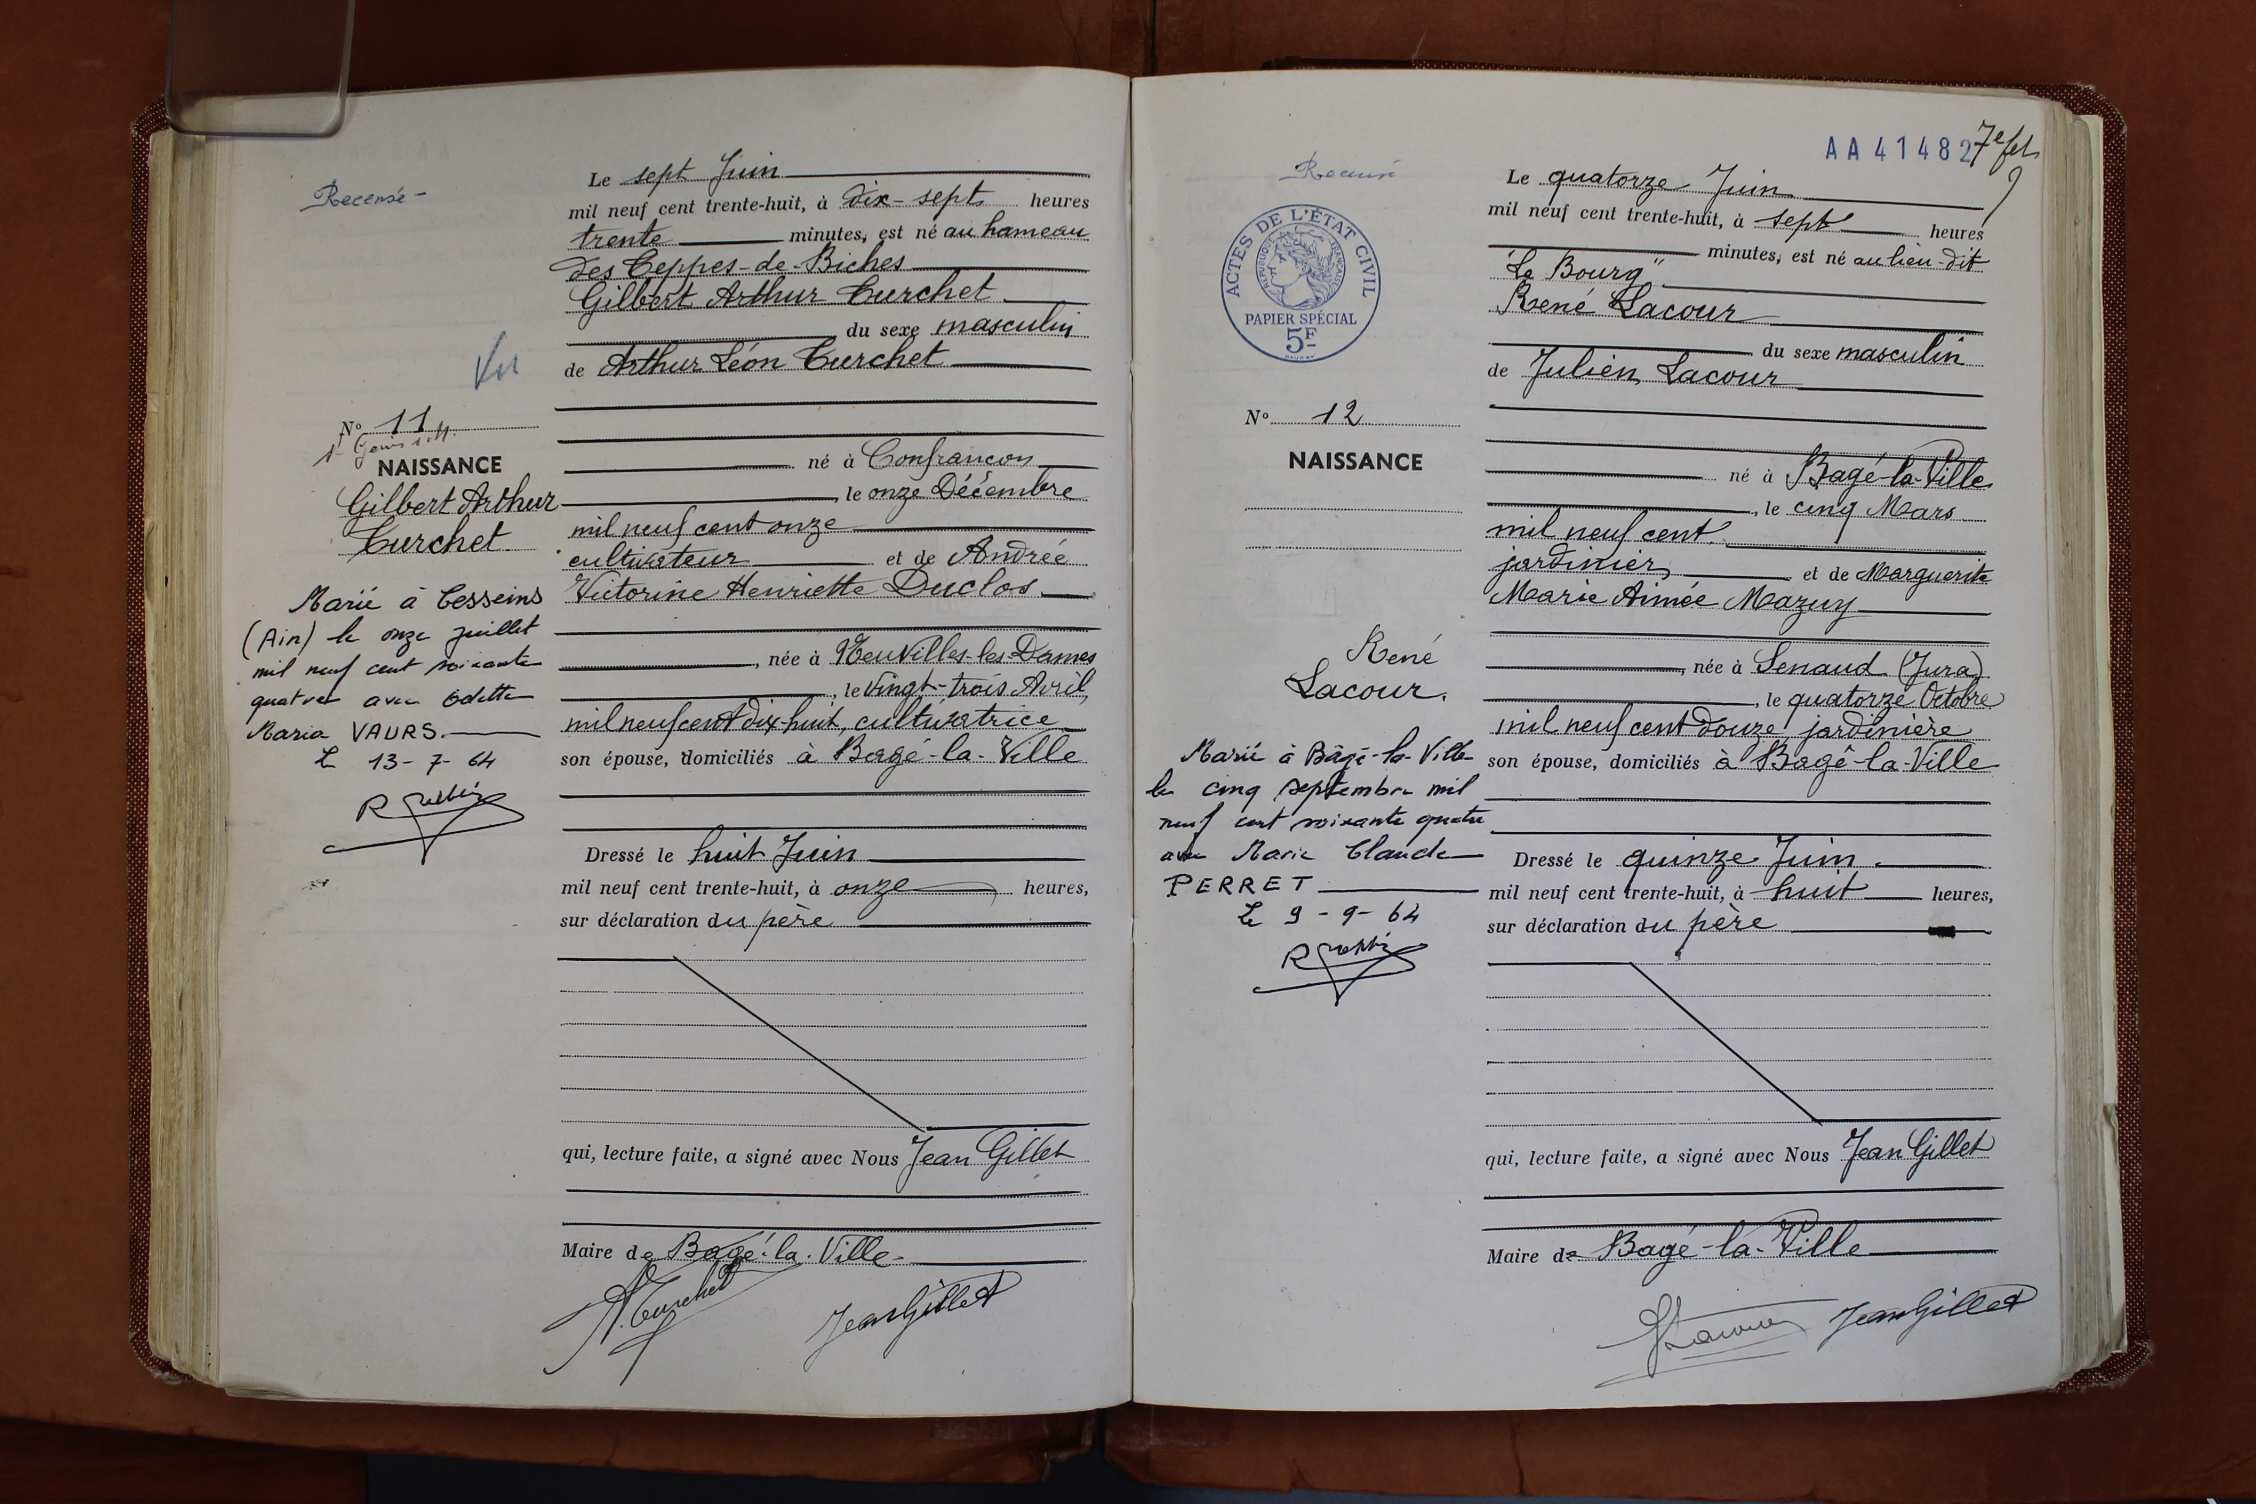 Recensé -
Le sept Juin
mil neuf cent trente-huit, à dix-sept heures
trente minutes, est né au hameau
des Teppes-de-Biches
Gilbert Arthur Curchet
du sexe masculin
de Arthur Léon Curchet
Vu
N° 11
NAISSANCE
Gilbert Arthur
Curchet
né à Confrançon
, le onze Décembre
mil neuf cent onze
cultivateur et de Andrée
Victorine Henriette Duclos
, née à Neuvilles-les-Dames
, le vingt-trois Avril
mil neuf cent dix-huit, cultivatrice
son épouse, domiciliés à Bagé-la-Ville
Marié à Cesseins
(Ain) le onze juillet
mil neuf cent soixante
quatre avec Odette
Maria VAURS.
Le 13-7-64
Dressé le huit Juin
mil neuf cent trente-huit, à onze heures,
sur déclaration du père
qui, lecture faite, a signé avec Nous Jean Gillet
Maire de Bagé-la-Ville
A. Curchet
Jean Gillet
AA41482
7e fet
Recensé
Le quatorze Juin
mil neuf cent trente-huit, à sept heures
minutes, est né au lieu-dit
"Le Bourg"
René Lacour
du sexe masculin
de Julien Lacour
ACTES DE L'ÉTAT CIVIL
RÉPUBLIQUE FRANÇAISE
PAPIER SPÉCIAL
5F
N° 12
NAISSANCE
né à Bagé-la-Ville
, le cinq Mars
mil neuf cent
jardinier et de Marguerite
Marie Aimée Mazuy
, née à Senaud (Jura)
, le quatorze Octobre
mil neuf cent douze, jardinière
son épouse, domiciliés à Bagé-la-Ville
René
Lacour.
Marié à Bâgé-la-Ville
le cinq septembre mil
neuf cent soixante quatre
avec Marie Claude
PERRET
Le 9-9-64
Dressé le quinze Juin
mil neuf cent trente-huit, à huit heures,
sur déclaration du père
qui, lecture faite, a signé avec Nous Jean Gillet
Maire de Bagé-la-Ville
J Lacour
Jean Gillet